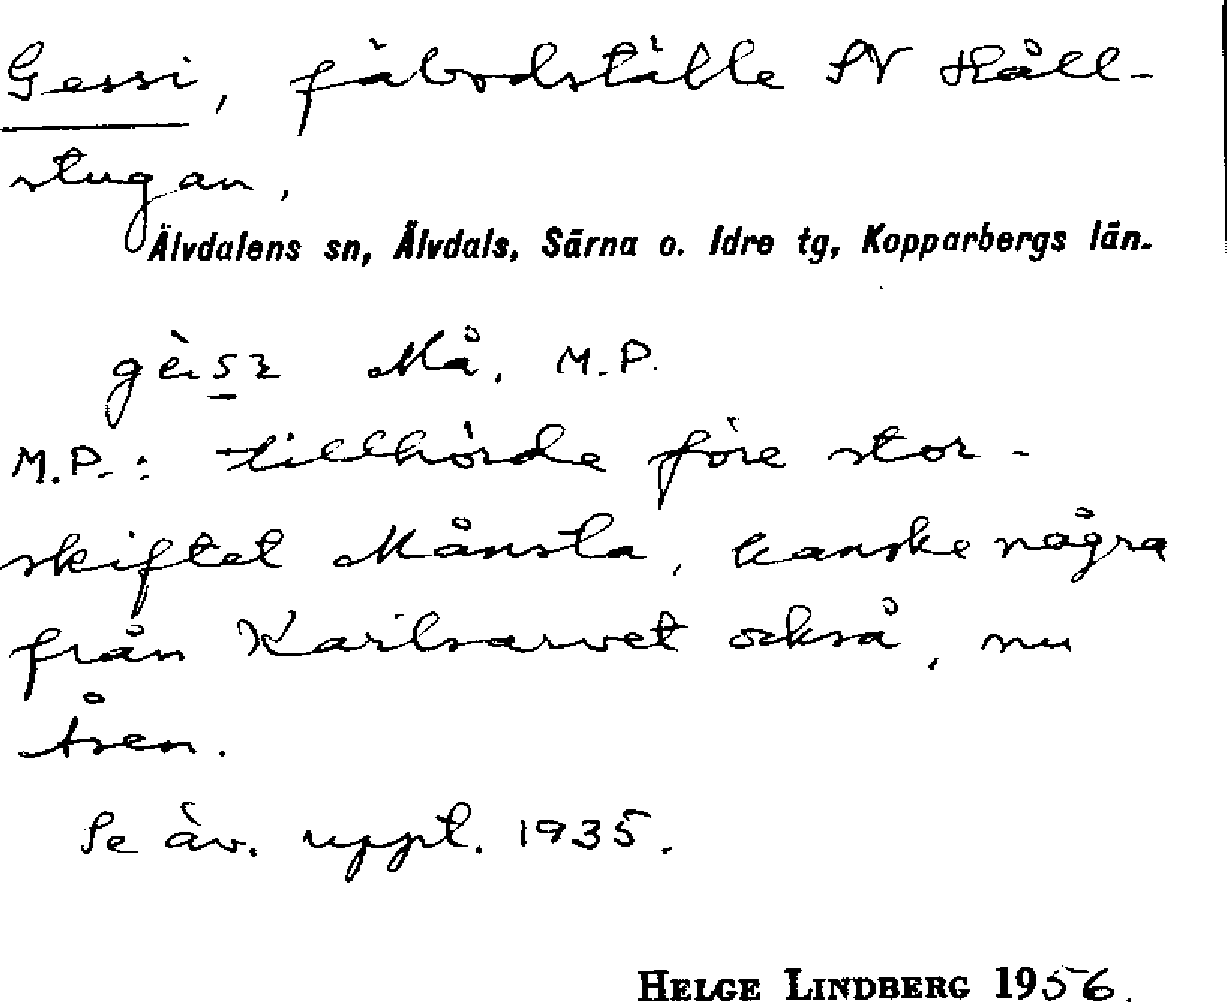 Gessi, fäbodställe SV Håll-
stugan,
Älvdalens sn, Älvdals, Särna o. Idre tg, Kopparbergs län.
Må, M.P.
M.P.: tillhörde före stor-
skiftet Månsta, kanske några
från Karlsarvet också, nu
Åsen.
Se äv. uppt. 1935.
HELGE LINDBERG 1956.